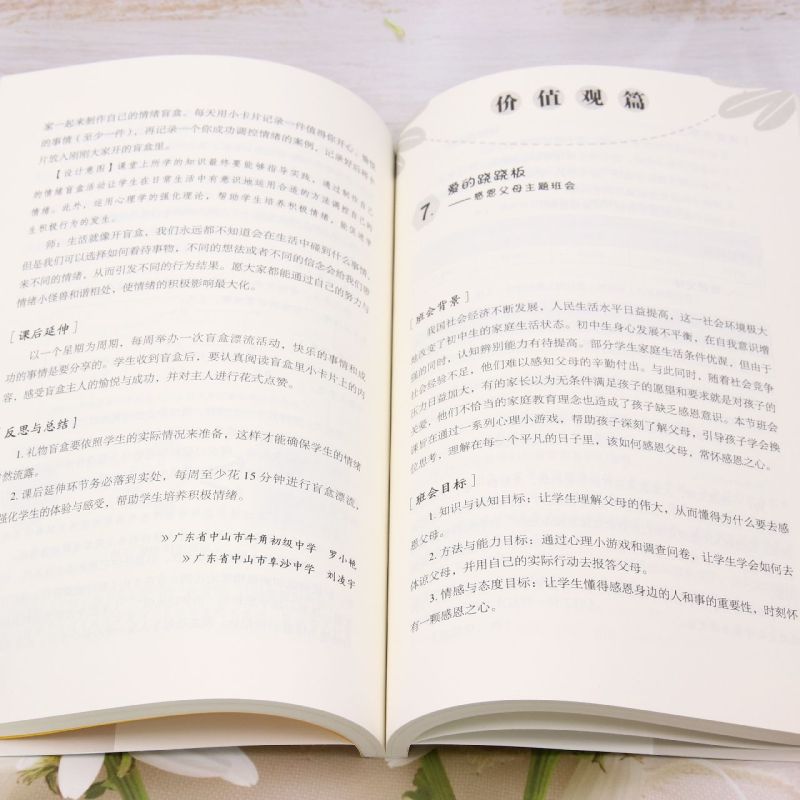 家一起来制作自己的情绪盲盒。每天用小卡片记录一件值得你开心、愉悦
的事情（至少一件），再记录一个你成功调控情绪的案例，记录好后将卡
片放入刚刚大家开的盲盒里。
【设计意图】课堂上所学的知识最终要能够指导实践，通过制作自己
的情绪盲盒活动让学生在日常生活中有意识地运用合适的方法调控自己的
情绪。此外，运用心理学的强化理论，帮助学生培养积极情绪，能促进学
生积极行为的发生。
师：生活就像开盲盒，我们永远都不知道会在生活中碰到什么事情，
但是我们可以选择如何看待事物，不同的想法或者不同的信念会给我们带
来不同的情绪，从而引发不同的行为结果。愿大家都能通过自己的努力与
情绪小怪兽和谐相处，使情绪的积极影响最大化。
[课后延伸]
以一个星期为周期，每周举办一次盲盒漂流活动，快乐的事情和成
功的事情是要分享的。学生收到盲盒后，要认真阅读盲盒里小卡片上的内
容，感受盲盒主人的愉悦与成功，并对主人进行花式点赞。
反思与总结]
1. 礼物盲盒要依照学生的实际情况来准备，这样才能确保学生的情绪
然流露。
2. 课后延伸环节务必落到实处，每周至少花 15 分钟进行盲盒漂流，
强化学生的体验与感受，帮助学生培养积极情绪。
》广东省中山市牛角初级中学 罗小艳
》广东省中山市阜沙中学 刘凌宇
价值观篇
7. 爱的跷跷板
——感恩父母主题班会
[班会背景]
我国社会经济不断发展，人民生活水平日益提高，这一社会环境极大
地改变了初中生的家庭生活状态。初中生身心发展不平衡，在自我意识增
强的同时，认知辨别能力有待提高。部分学生家庭生活条件优渥，但由于
社会经验不足，他们难以感知父母的辛勤付出。与此同时，随着社会竞争
压力日益加大，有的家长以为无条件满足孩子的愿望和要求就是对孩子的
关爱，他们不恰当的家庭教育理念也造成了孩子缺乏感恩意识。本节班会
课旨在通过一系列心理小游戏，帮助孩子深刻了解父母，引导孩子学会换
位思考，理解在每一个平凡的日子里，该如何感恩父母，常怀感恩之心。
[班会目标]
1. 知识与认知目标：让学生理解父母的伟大，从而懂得为什么要去感
恩父母。
2. 方法与能力目标：通过心理小游戏和调查问卷，让学生学会如何去
体谅父母，并用自己的实际行动去报答父母。
3. 情感与态度目标：让学生懂得感恩身边的人和事的重要性，时刻怀
有一颗感恩之心。